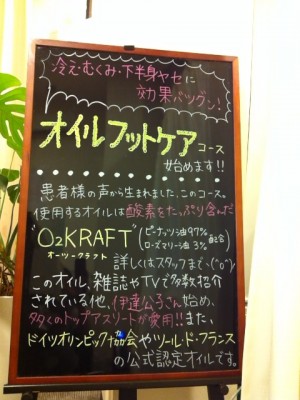 冷え・むくみ・下半身ヤセに
効果バツグン!
オイルフットケアコース
始めます!!
患者様の声から生まれました、このコース。
使用するオイルは酸素をたっぷり含んだ
"O2KRAFT" (ピーナッツ油97% ローズマリー油3% 配合)
オーツークラフト
詳しくはスタッフまで、(^o^)/
このオイル、雑誌やTVで多数紹介
されている他、伊達公子さん始め、
多くのトップアスリートが愛用!!また、
ドイツオリンピック協会やツール・ド・フランス
の公式認定オイルです。